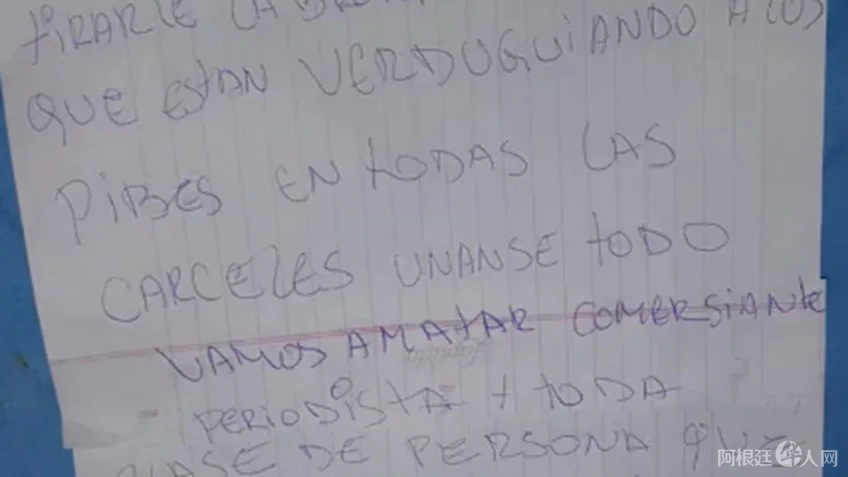 TIRARLE LA
QUE ESTAN VERDUGUIANDO A LOS
PIBES EN TODAS LAS
CARCELES UNANSE TODO
VAMOS A MATAR COMERSIANTE
PERIODISTA + TODA
CLASE DE PERSONA QUE
阿根廷华人网